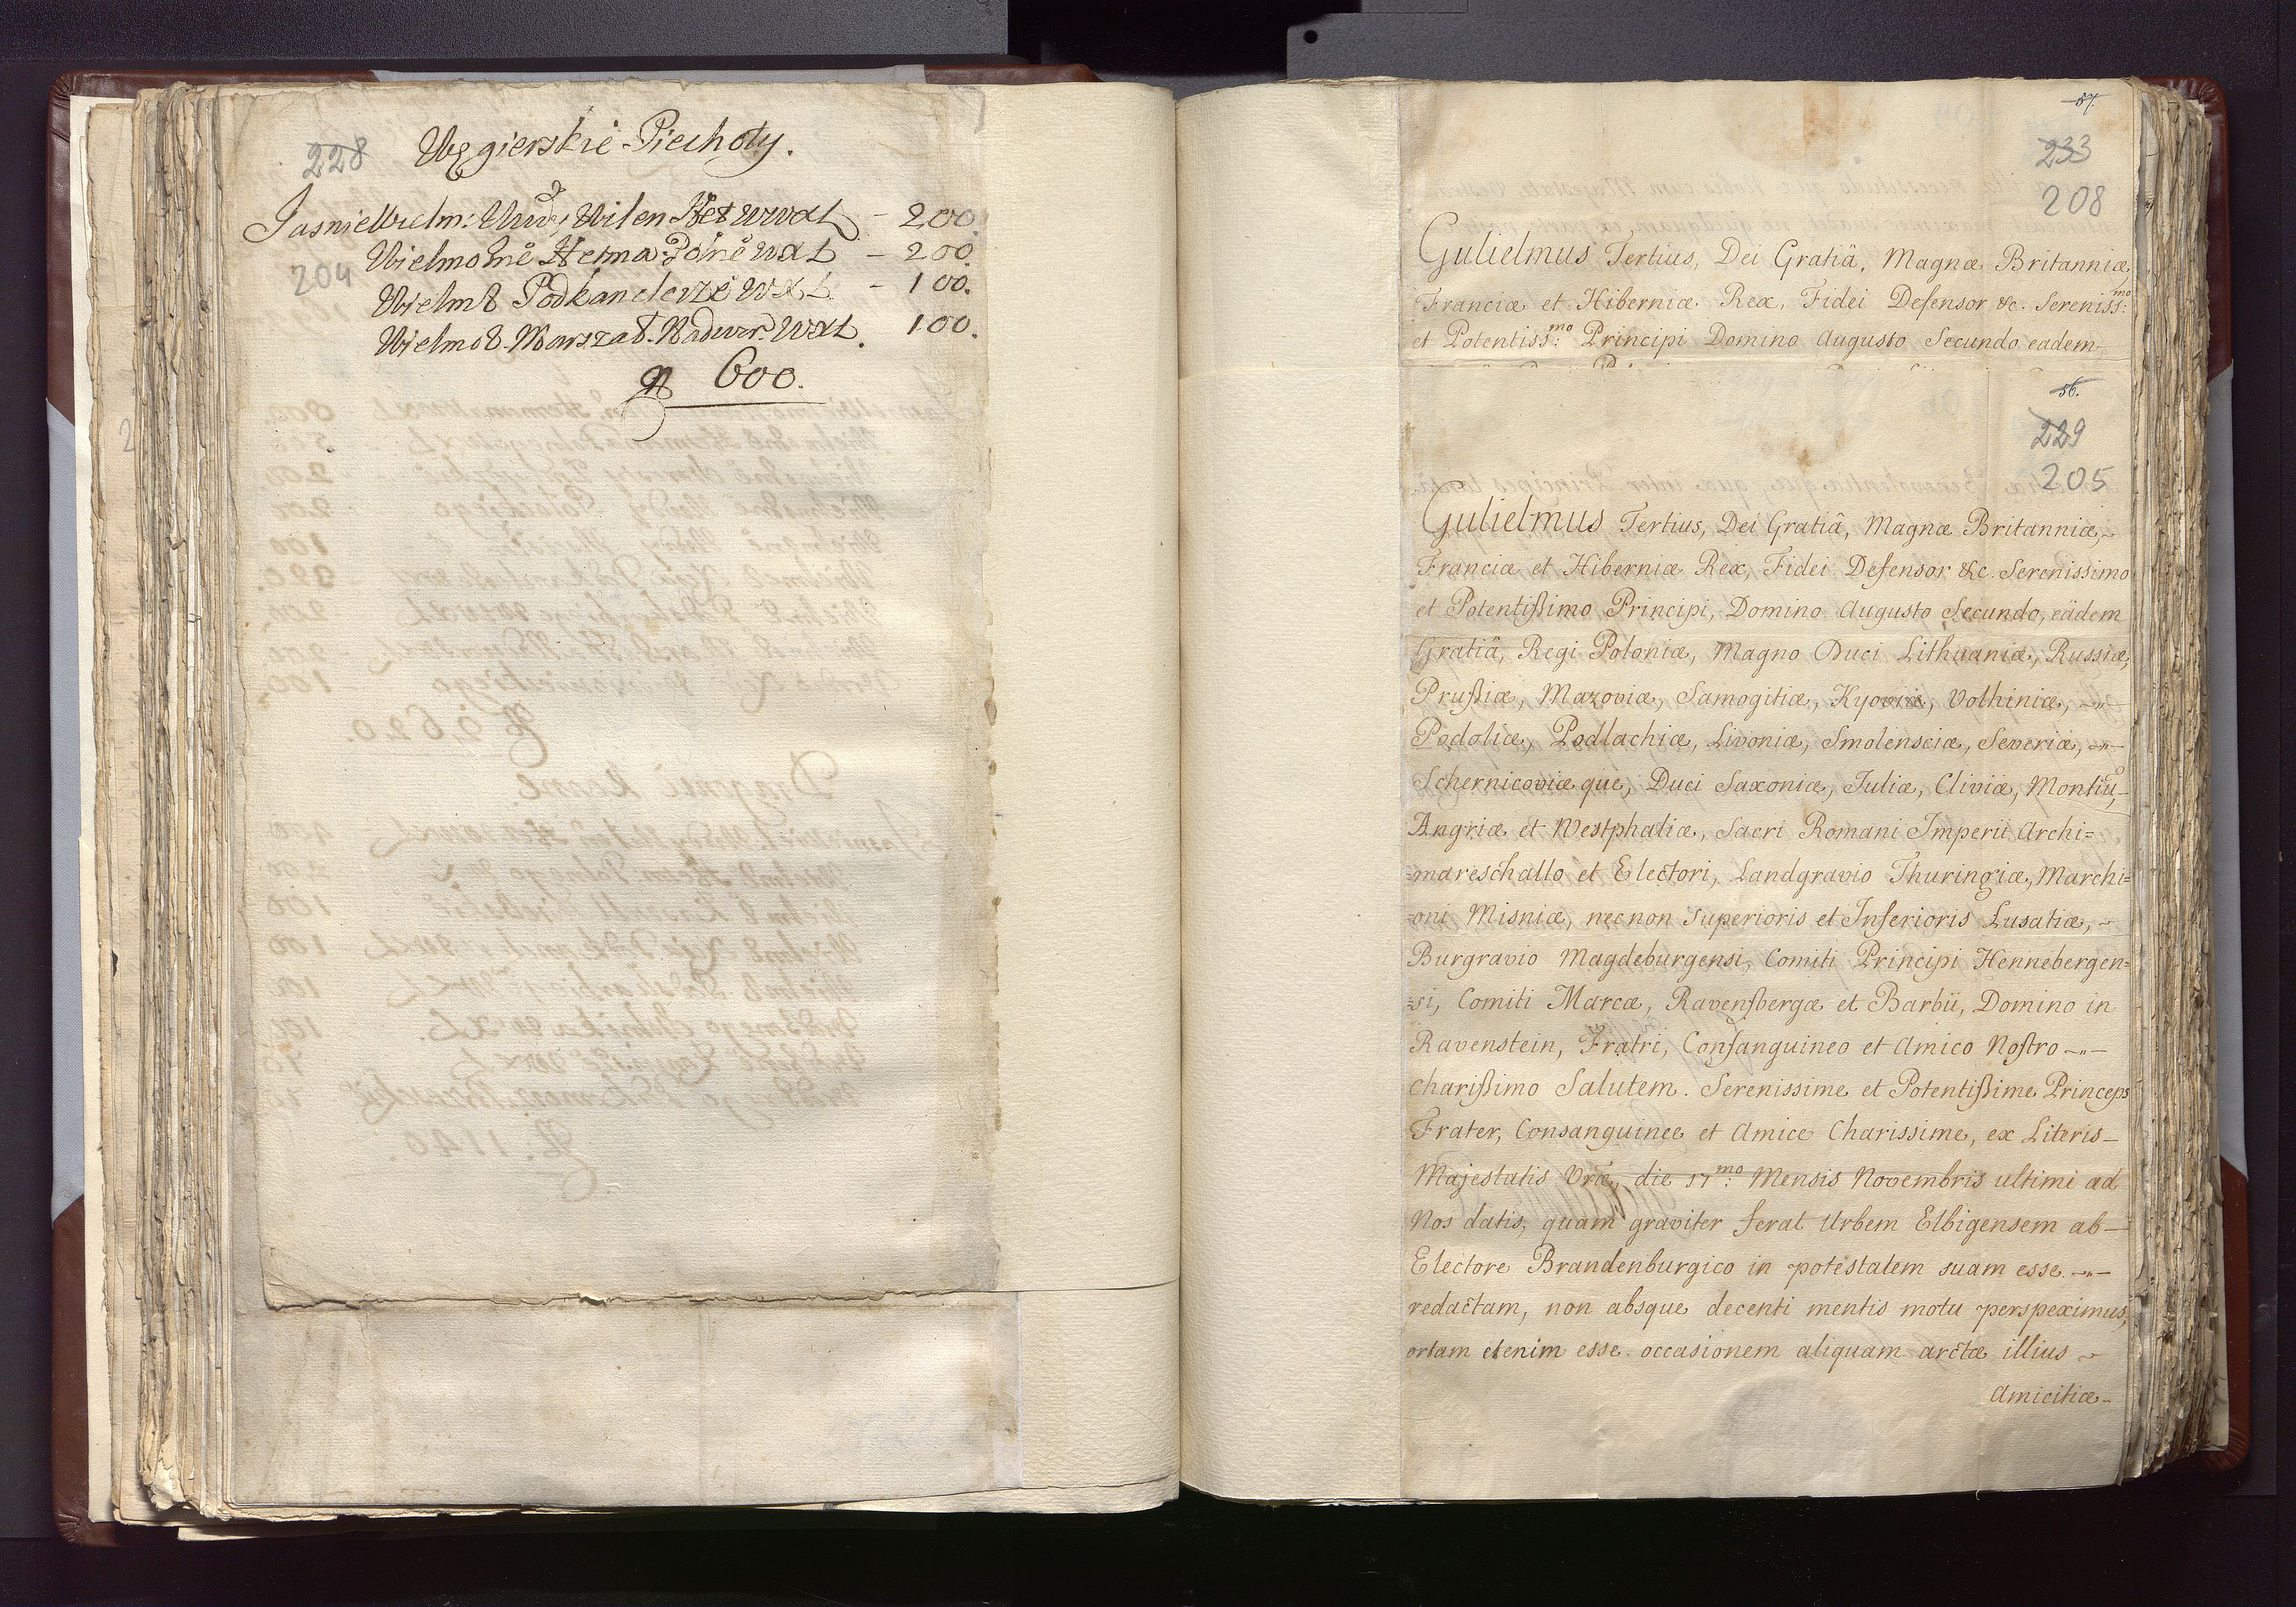 228
Węgierskie Piechoty.
JasnieWielm: Wilen Het WWXL - 200.
204
Wielmo Hetma Polne WXL - 200.
Wielm Podkanclerze WXL. - 100.
Wielmo Marszał. Nadwor. WXL. 100.
600.
57.
233
208
Gulielmus Tertius, Dei Gratiâ, Magnæ Britanniæ
Franciæ et Hiberniæ Rex, Fidei Defensor &c. Sereniss:mo
et Potentiss:mo Principi Domino Augusto Secundo eadem
56.
229
205
Gulielmus Tertius, Dei Gratiâ, Magnæ Britanniæ,
Franciæ et Hiberniæ Rex, Fidei Defensor &c. Serenissimo
et Potentißimo Principi, Domino Augusto Secundo, eâdem
Gratiâ, Regi Poloniæ, Magno Duci Lithuaniæ, Russiæ,
Prußiæ, Mazoviæ, Samogitiæ, Kyoviæ, Volhiniæ,
Podoliæ, Podlachiæ, Livoniæ, Smolensciæ, Severiæ,
Schernicoviæque, Duci Saxoniæ, Juliæ, Cliviæ, Montiũ,
Angriæ et Westphaliæ, Sacri Romani Imperii Archi=
=mareschallo et Electori, Landgravio Thuringiæ, Marchi=
=oni Misniæ, necnon Superioris et Inferioris Lusatiæ,
Burgravio Magdeburgensi, Comiti Principi Hennebergen=
=si, Comiti Marcæ, Ravensbergæ et Barbii, Domino in
Ravenstein, Fratri, Consanguineo et Amico Nostro
charißimo Salutem. Serenissime et Potentißime Princeps
Frater, Consanguinee et Amice Charissime, ex Literis
Majestatis Vræ, die 17mo: Mensis Novembris ultimi ad
Nos datis, quam graviter ferat Urbem Elbigensem ab
Electore Brandenburgico in potestatem suam esse
redactam, non absque decenti mentis motu perspeximus,
ortam etenim esse occasionem aliquam arctæ illius
Amicitiæ